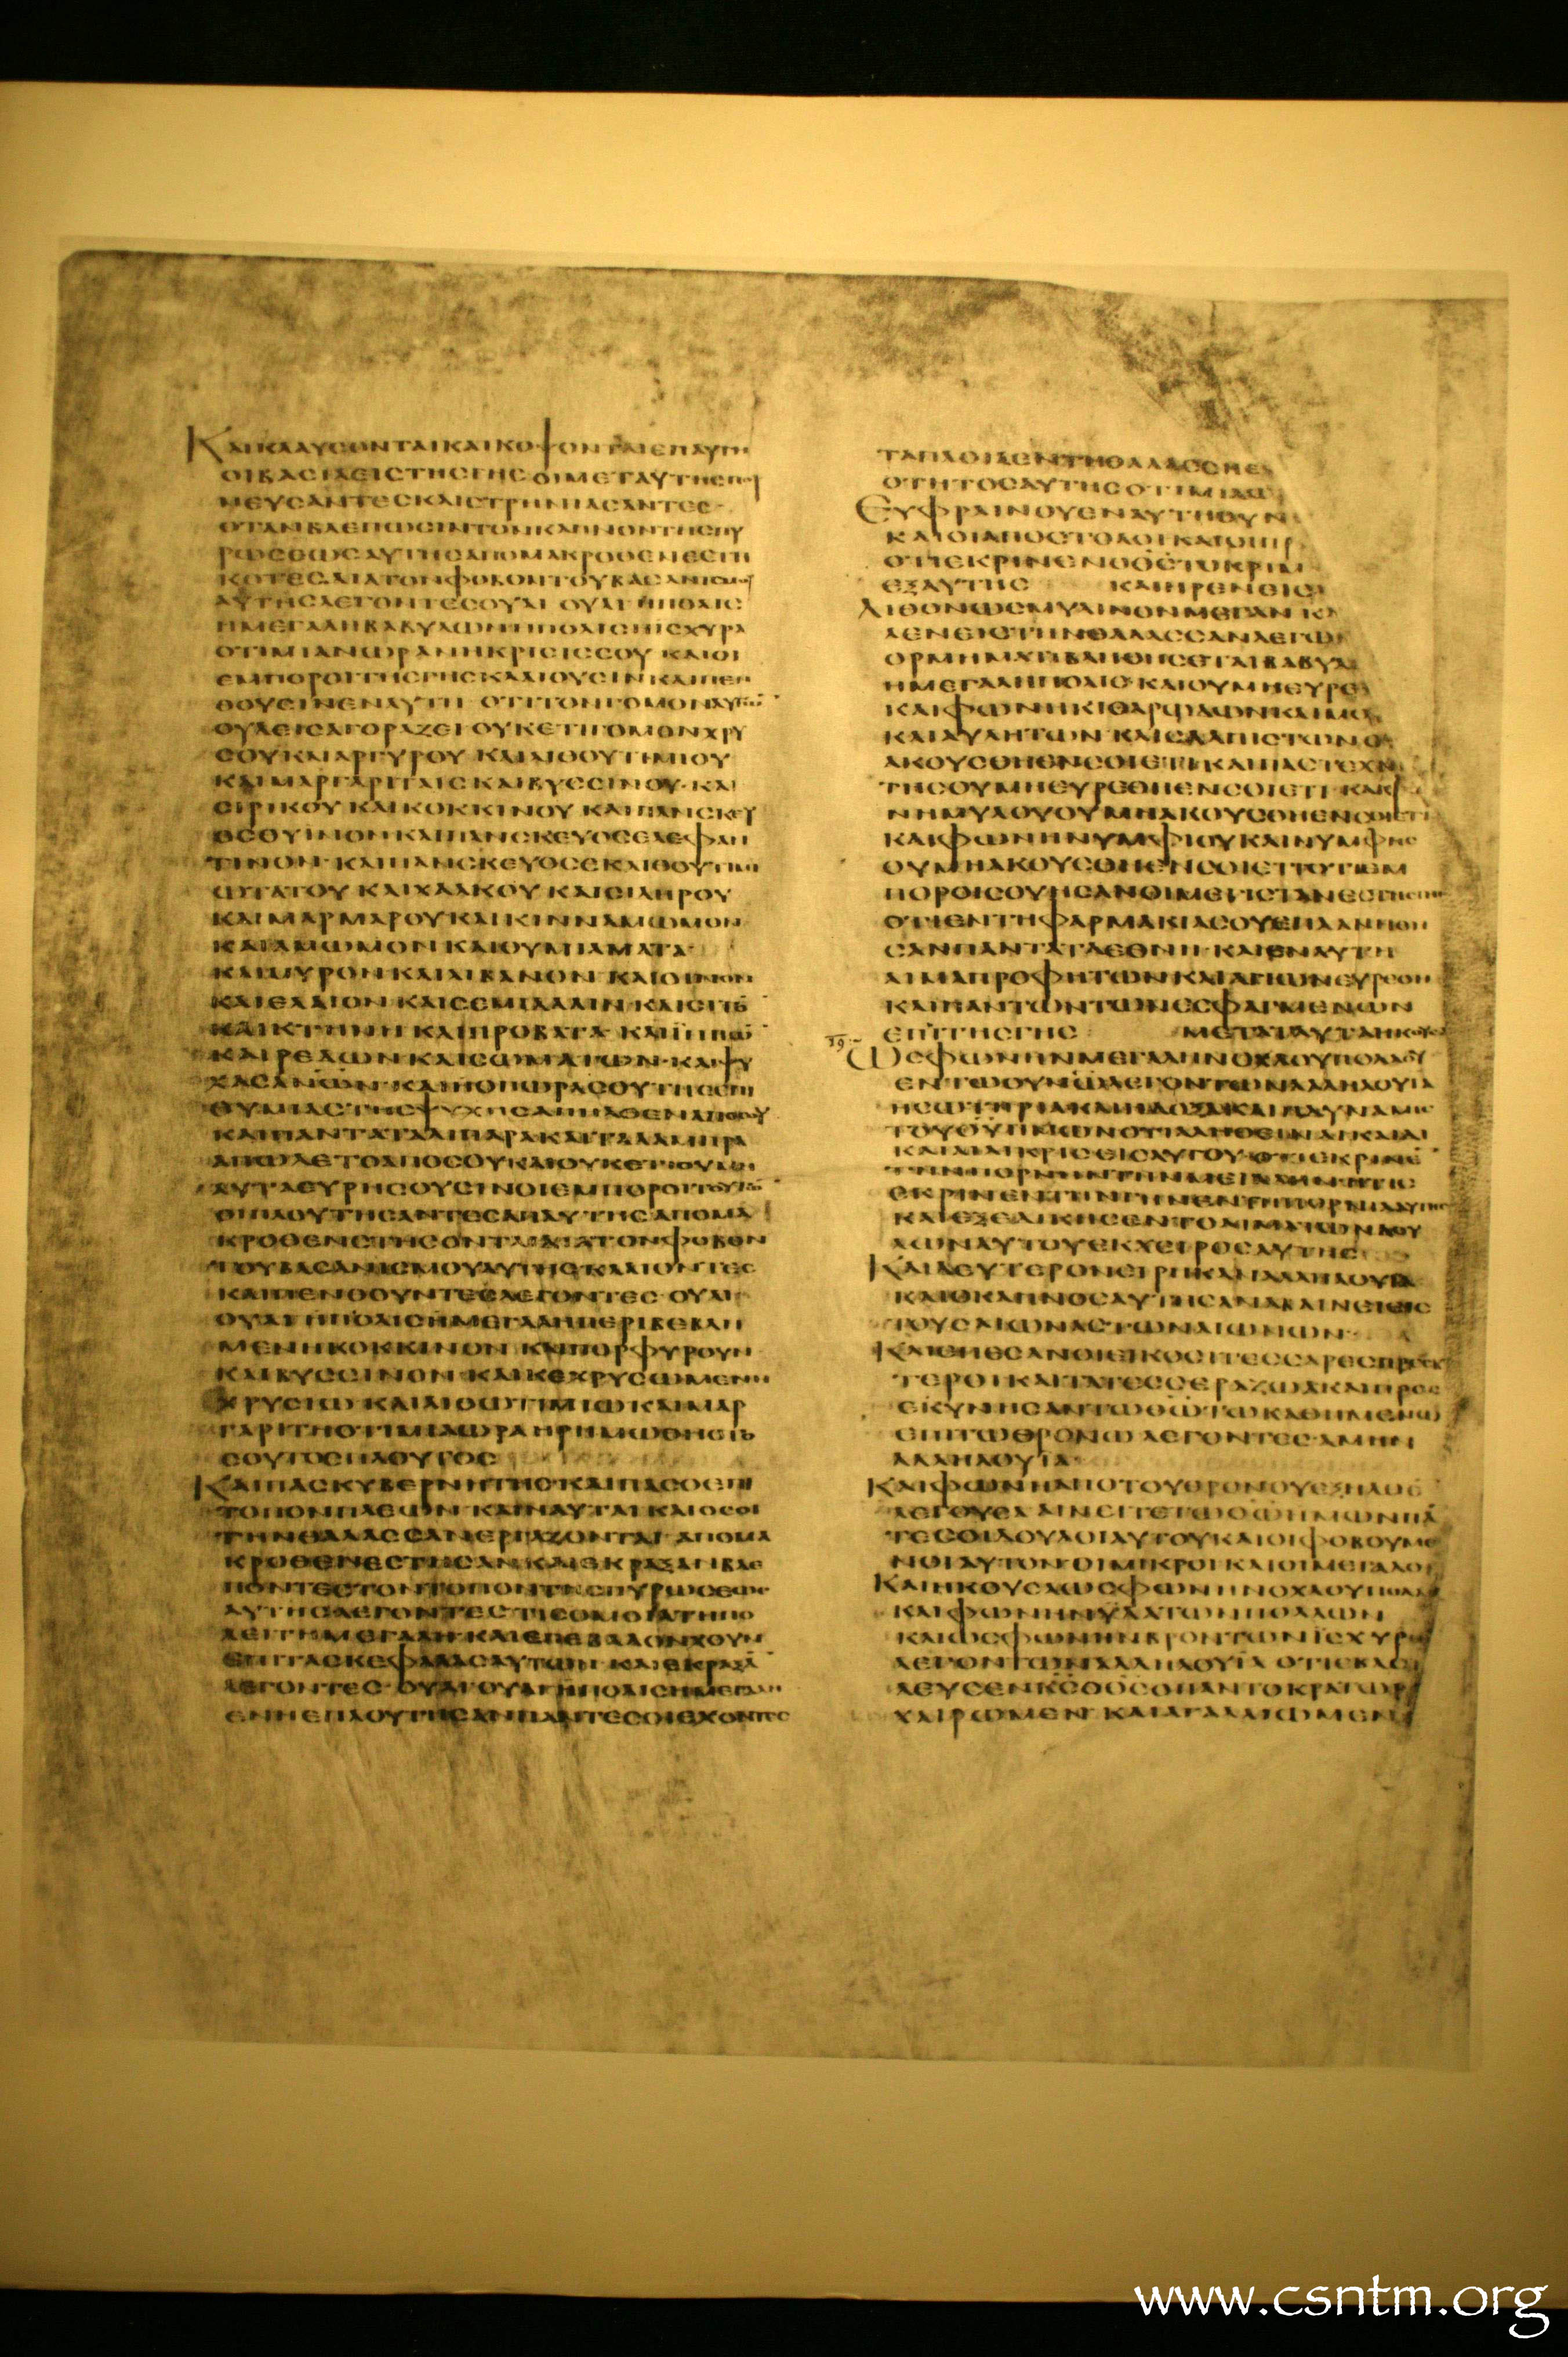 ΚΑΙΚΛΑΥCΟΝΤΑΙΚΑΙΚΟΨΟΝΤΑΙΕΠΑΥΤΗ
ΟΙΒΑCΙΛΕΙCΤΗCΓΗCΟΙΜΕΤΑΥΤΗC
CΑΝΤΕCΚΑΙCΤΡΗΝΙΑCΑΝΤΕC
ΟΤΑΝΒΛΕΠΩCΙΝΤΟΝΚΑΠΝΟΝΤΗCΠΥ
ΡΩCΕΩCΑΥΤΗCΑΠΟΜΑΚΡΟΘΕΝΕCΤΗ
ΚΟΤΕCΔΙΑΤΟΝΦΟΒΟΝΤΟΥΒΑCΑΝΙCΜΟΥ
ΑΥΤΗCΛΕΓΟΝΤΕCΟΥΑΙ ΟΥΑΙ ΗΠΟΛΙC
ΗΜΕΓΑΛΗΒΑΒΥΛΩΝΗΠΟΛΙCΗΙCΧΥΡΑ
ΟΤΙΜΙΑΝΩΡΑΝΗΚΡΙCΙCCΟΥ ΚΑΙΟΙ
ΕΜΠΟΡΟΙΤΗCΓΗCΚΛΑΙΟΥCΙΝΚΑΙΠΕΝ
ΘΟΥCΙΝΕΝΑΥΤΗ ΟΤΙΤΟΝΓΟΜΟΝΑΥΤΩ̅
ΟΥΔΕΙCΑΓΟΡΑΖΕΙΟΥΚΕΤΙΓΟΜΟΝΧΡΥ
CΟΥΚΑΙΑΡΓΥΡΟΥ ΚΑΙΛΙΘΟΥΤΙΜΙΟΥ
ΚΑΙΜΑΡΓΑΡΙΤΑΙC ΚΑΙΒΥCCΙΝΟΥ·ΚΑΙ
CΙΡΙΚΟΥ ΚΑΙΚΟΚΚΙΝΟΥ ΚΑΙΠΑΝCΚΕΥ
ΟCΘΥΙΝΟΝ·ΚΑΙΠΑΝCΚΕΥΟCΕΛΕΦΑΝ
ΤΙΝΟΝ·ΚΑΙΠΑΝCΚΕΥΟCΕΚΛΙΘΟΥΤΙΜΙ
ΩΤΑΤΟΥ ΚΑΙΧΑΛΚΟΥ ΚΑΙCΙΔΗΡΟΥ
ΚΑΙΜΑΡΜΑΡΟΥΚΑΙΚΙΝΝΑΜΩΜΟΝ
ΚΑΙΑΜΩΜΟΝ ΚΑΙΘΥΜΙΑΜΑΤΑ
ΚΑΙΜΥΡΟΝΚΑΙΛΙΒΑΝΟΝ ΚΑΙΟΙΝΟΝ
ΚΑΙΕΛΑΙΟΝ ΚΑΙCΕΜΙΔΑΛΙΝ ΚΑΙCΙΤΟ̅
ΚΑΙΚΤΗΝΗ ΚΑΙΠΡΟΒΑΤΑ ΚΑΙΙΠΠΩ̅
ΚΑΙΡΕΔΩΝ ΚΑΙCΩΜΑΤΩΝ·ΚΑΙΨΥ
ΧΑCΑΝΩΝ·ΚΑΙΗΟΠΩΡΑCΟΥΤΗCΕΠΙ
ΘΥΜΙΑCΤΗCΨΥΧΗCΑΠΗΛΘΕΝΑΠΟCΟΥ
ΚΑΙΠΑΝΤΑΤΑΛΙΠΑΡΑΚΑΙΤΑΛΑΜΠΡΑ
ΑΠΩΛΕΤΟΑΠΟCΟΥΚΑΙΟΥΚΕΤΙΟΥΜΗ
ΑΥΤΑΕΥΡΗCΟΥCΙΝΟΙΕΜΠΟΡΟΙΤΟΥΤΩ̅
ΟΙΠΛΟΥΤΗCΑΝΤΕCΑΠΑΥΤΗCΑΠΟΜΑ
ΚΡΟΘΕΝCΤΗCΟΝΤΑΙΔΙΑΤΟΝΦΟΒΟΝ
ΤΟΥΒΑCΑΝΙCΜΟΥΑΥΤΗCΚΛΑΙΟΝΤΕC
ΚΑΙΠΕΝΘΟΥΝΤΕCΛΕΓΟΝΤΕC ΟΥΑΙ
ΟΥΑΙΗΠΟΛΙCΗΜΕΓΑΛΗΠΕΡΙΒΕΒΛΗ
ΜΕΝΗΚΟΚΚΙΝΟΝ ΚΑΙΠΟΡΦΥΡΟΥΝ
ΚΑΙΒΥCCΙΝΟΝ ΚΑΙΚΕΧΡΥCΩΜΕΝΗ
ΧΡΥCΙΩ ΚΑΙΛΙΘΩΤΙΜΙΩΚΑΙΜΑΡ
ΓΑΡΙΤΗΟΤΙΜΙΑΩΡΑΗΡΗΜΩΘΗΟ
CΟΥΤΟCΠΛΟΥΤΟC
ΚΑΙΠΑCΚΥΒΕΡΝΗΤΗCΚΑΙΠΑCΟΕΠΙ
ΤΟΠΟΝΠΛΕΩΝ ΚΑΙΝΑΥΤΑΙ ΚΑΙΟCΟΙ
ΤΗΝΘΑΛΑCCΑΝΕΡΓΑΖΟΝΤΑΙ ΑΠΟΜΑ
ΚΡΟΘΕΝΕCΤΗCΑΝ ΚΑΙΕΚΡΑΖΑΝΒΛΕ
ΠΟΝΤΕCΤΟΝΤΟΠΟΝΤΗCΠΥΡΩCΕΩC
ΑΥΤΗCΛΕΓΟΝΤΕC ΤΙCΟΜΟΙΑΤΗΠΟ
ΛΕΙΤΗΜΕΓΑΛΗ ΚΑΙΕΠΕΒΑΛΟΝΧΟΥΝ
ΕΠΙΤΑCΚΕΦΑΛΑCΑΥΤΩΝ ΚΑΙΕΚΡΑΖΑ̅
ΛΕΓΟΝΤΕC ΟΥΑΙ ΟΥΑΙ ΗΠΟΛΙCΗΜΕΓΑΛΗ
ΕΝΗΕΠΛΟΥΤΗCΑΝΠΑΝΤΕCΟΙΕΧΟΝΤΕC
ΤΑΠΛΟΙΑΕΝΤΗΘΑΛΑCCΗΕ
ΟΤΗΤΟCΑΥΤΗCΟΤΙΜΙΑΩ
ΕΥΦΡΑΙΝΟΥΕΝΑΥΤΗΟΥΝ
ΚΑΙΟΙΑΠΟCΤΟΛΟΙΚΑΙΟΙΠΡ
ΟΤΙΕΚΡΙΝΕΝΟΘ̅C̅ΤΟΚΡΙΜ
ΕΞΑΥΤΗC ΚΑΙΗΡΕΝΕΙC
ΛΙΘΟΝΩCΜΥΛΙΝΟΝΜΕΓΑΝ Κ
ΛΕΝΕΙCΤΗΝΘΑΛΑCCΑΝΛΕΓΩΝ
ΟΡΜΗΜΑΤΙΒΛΗΘΗCΕΤΑΙΒΑΒΥΛ
ΗΜΕΓΑΛΗΠΟΛΙC·ΚΑΙΟΥΜΗΕΥΡΕ
ΚΑΙΦΩΝΗΚΙΘΑΡΩΔΩΝΚΑΙΜΟΥ
ΚΑΙΑΥΛΗΤΩΝ ΚΑΙCΑΛΠΙCΤΩΝΟ
ΑΚΟΥCΘΗΕΝCΟΙΕΤΙΚΑΙΠΑCΤΕΧΝ
ΤΗCΟΥΜΗΕΥΡΕΘΗΕΝCΟΙΕΤΙ·ΚΑΙΦ
ΝΗΜΥΛΟΥΟΥΜΗΑΚΟΥCΘΗΕΝCΟΙΕΤΙ
ΚΑΙΦΩΝΗΝΥΜΦΙΟΥΚΑΙΝΥΜΦΗC
ΟΥΜΗΑΚΟΥCΘΗΕΝCΟΙΕΤΙ
ΠΟΡΟΙCΟΥΗCΑΝΟΙΜΕΓΙCΤΑΝΕCΤΗCΓΗC
ΟΤΙΕΝΤΗΦΑΡΜΑΚΙΑCΟΥΕΠΛΑΝΗΘΗ
CΑΝΠΑΝΤΑΤΑΕΘΝΗ·ΚΑΙΕΝΑΥΤΗ
ΑΙΜΑΠΡΟΦΗΤΩΝΚΑΙΑΓΙΩΝΕΥΡΕΘΗ
ΚΑΙΠΑΝΤΩΝΤΩΝΕCΦΑΓΜΕΝΩΝ
ΕΠΙΤΗCΓΗC ΜΕΤΑΤΑΥΤΑΗΚΟΥCΑ
19
ΩCΦΩΝΗΝΜΕΓΑΛΗΝΟΧΛΟΥΠΟΛΛΟΥ
ΕΝΤΩΟΥΝΩΛΕΓΟΝΤΩΝΑΛΛΗΛΟΥΙΑ
ΗCΩΤΗΡΙΑΚΑΙΗΔΟΞΑΚΑΙΗΔΥΝΑΜΙC
ΤΟΥΘΥ̅ΗΜΩΝΟΤΙΑΛΗΘΕΙΝΑΙΚΑΙΔΙ
ΚΑΙΑΙΑΙΚΡΙCΕΙCΑΥΤΟΥΟΤΙΕΚΡΙΝΕ̅
ΤΗΝΠΟΡΝΗΝΤΗΝΜΕΓΑΛΗΝΗΤΙC
ΕΚΡΙΝΕΝΤΗΝΓΗΝΕΝΤΗΠΟΡΝΙΑΑΥΤΗC
ΚΑΙΕΞΕΔΙΚΗCΕΝΤΟΑΙΜΑΤΩΝΔΟΥ
ΛΩΝΑΥΤΟΥΕΚΧΕΙΡΟCΑΥΤΗC
ΚΑΙΔΕΥΤΕΡΟΝΕΙΡΗΚΑΝΑΛΛΗΛΟΥΙΑ
ΚΑΙΟΚΑΠΝΟCΑΥΤΗCΑΝΑΒΑΙΝΕΙΕΙC
ΤΟΥCΑΙΩΝΑCΤΩΝΑΙΩΝΩΝ
ΚΑΙΕΠΕCΑΝΟΙΕΙΚΟCΙΤΕCCΑΡΕCΠΡΕCΒΥ
ΤΕΡΟΙΚΑΙΤΑΤΕCCΕΡΑΖΩΑΚΑΙΠΡΟC
ΕΚΥΝΗCΑΝΤΩΘΩ̅ΤΩΚΑΘΗΜΕΝΩ
ΕΠΙΤΩΘΡΟΝΩ ΛΕΓΟΝΤΕC ΑΜΗΝ
ΑΛΛΗΛΟΥΙΑ·
ΚΑΙΦΩΝΗΑΠΟΤΟΥΘΡΟΝΟΥΕΞΗΛΘΕ
ΛΕΓΟΥCΑ ΑΙΝΕΙΤΕΤΩΘΩ̅ΗΜΩΝΠΑ̅
ΤΕCΟΙΔΟΥΛΟΙΑΥΤΟΥΚΑΙΟΙΦΟΒΟΥΜΕ
ΝΟΙΑΥΤΟΝΟΙΜΙΚΡΟΙΚΑΙΟΙΜΕΓΑΛΟΙ
ΚΑΙΗΚΟΥCΑΩCΦΩΝΗΝΟΧΛΟΥΠΟΛΛΟΥ
ΚΑΙΦΩΝΗΝΥΔΑΤΩΝΠΟΛΛΩΝ
ΚΑΙΩCΦΩΝΗΝΒΡΟΝΤΩΝΙCΧΥΡΩ
ΛΕΓΟΝΤΩΝΑΛΛΗΛΟΥΙΑ ΟΤΙΕΒΑCΙ
ΛΕΥCΕΝΚ̅C̅ΟΘ̅C̅ΟΠΑΝΤΟΚΡΑΤΩΡ
ΧΑΙΡΩΜΕΝ ΚΑΙΑΓΑΛΛΙΩΜΕΝ
www.csntm.org